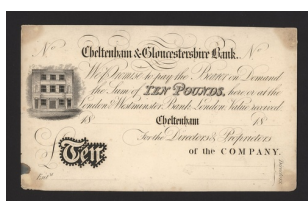 No Cheltenham & Gloucestershire Bank. No
We Promise to pay the Bearer on Demand
the Sum of TEN POUNDS, here or at the
London & Westminster Bank London Value received
18 Cheltenham 18
For the Directors & Proprietors
of the COMPANY.
£ Ten